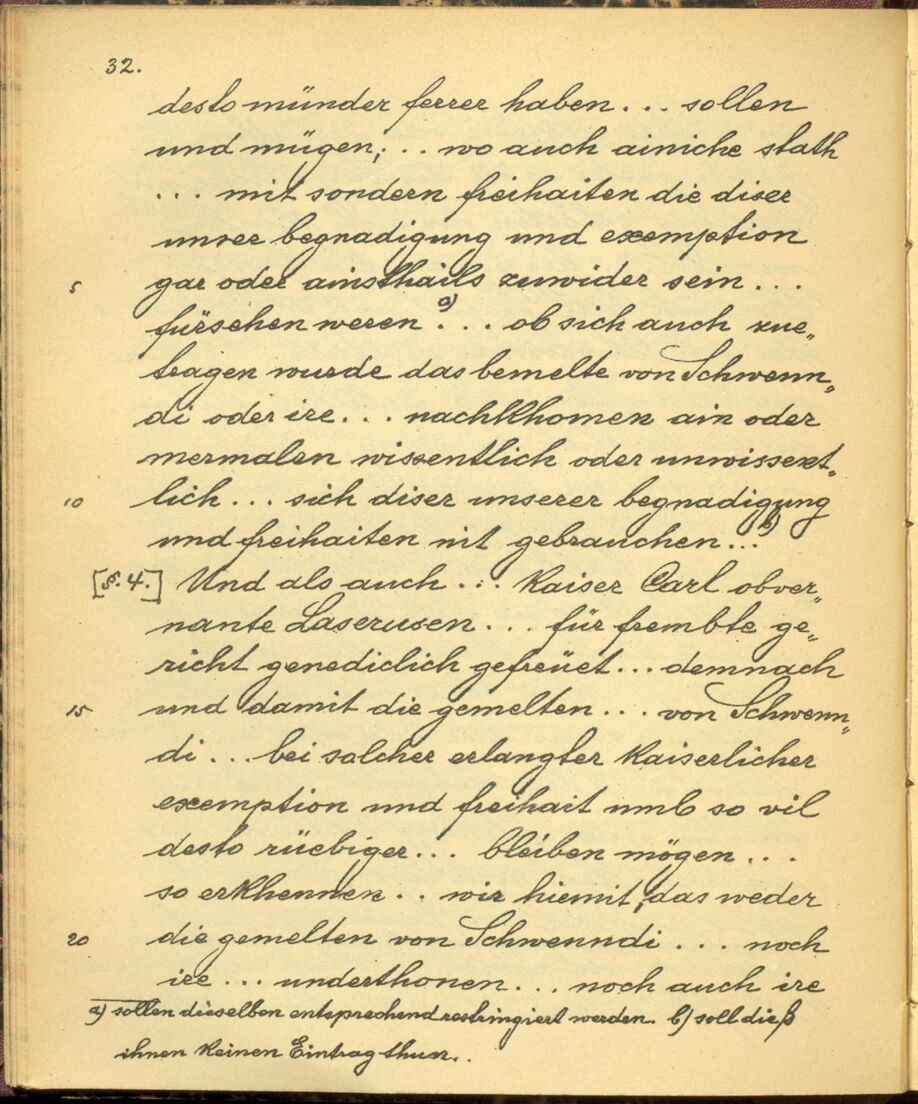 32.
desto münder ferrer haben... sollen
und mügen;.. wo auch ainiche stath
... mit sondern freihaiten die diser
unser begnadigung und exemption
5 gar oder ainsthails zuwider sein...
fürsehen weren a)... ob sich auch zue„
tragen wurde das bemelte von Schwenn„
di oder ire... nachkhomen ain oder
mermalen wissentlich oder unwissent„
10 lich... sich diser unserer begnadigung
und freihaiten nit gebrauchen... b)
[§.4.] Und als auch... Kaiser Carl obver„
nante Laserusen... für frembte ge„
richt genediclich gefreüet... demnach
15 und damit die gemelten... von Schwenn„
di... bei solcher erlangter Kaiserlicher
exemption und freihait umb so vil
desto rüebiger... bleiben mögen...
so erkhennen.. wir hiemit, das weder
20 die gemelten von Schwenndi... noch
ire... underthonen... noch auch ire
a) sollen dieselben entsprechend restringiert werden. b) soll dieß
ihnen keinen Eintrag thun..